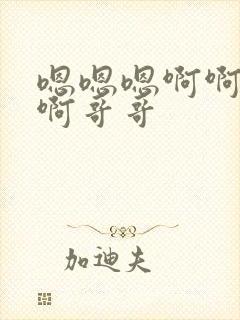 嗯嗯嗯啊啊
啊哥哥
加迪夫